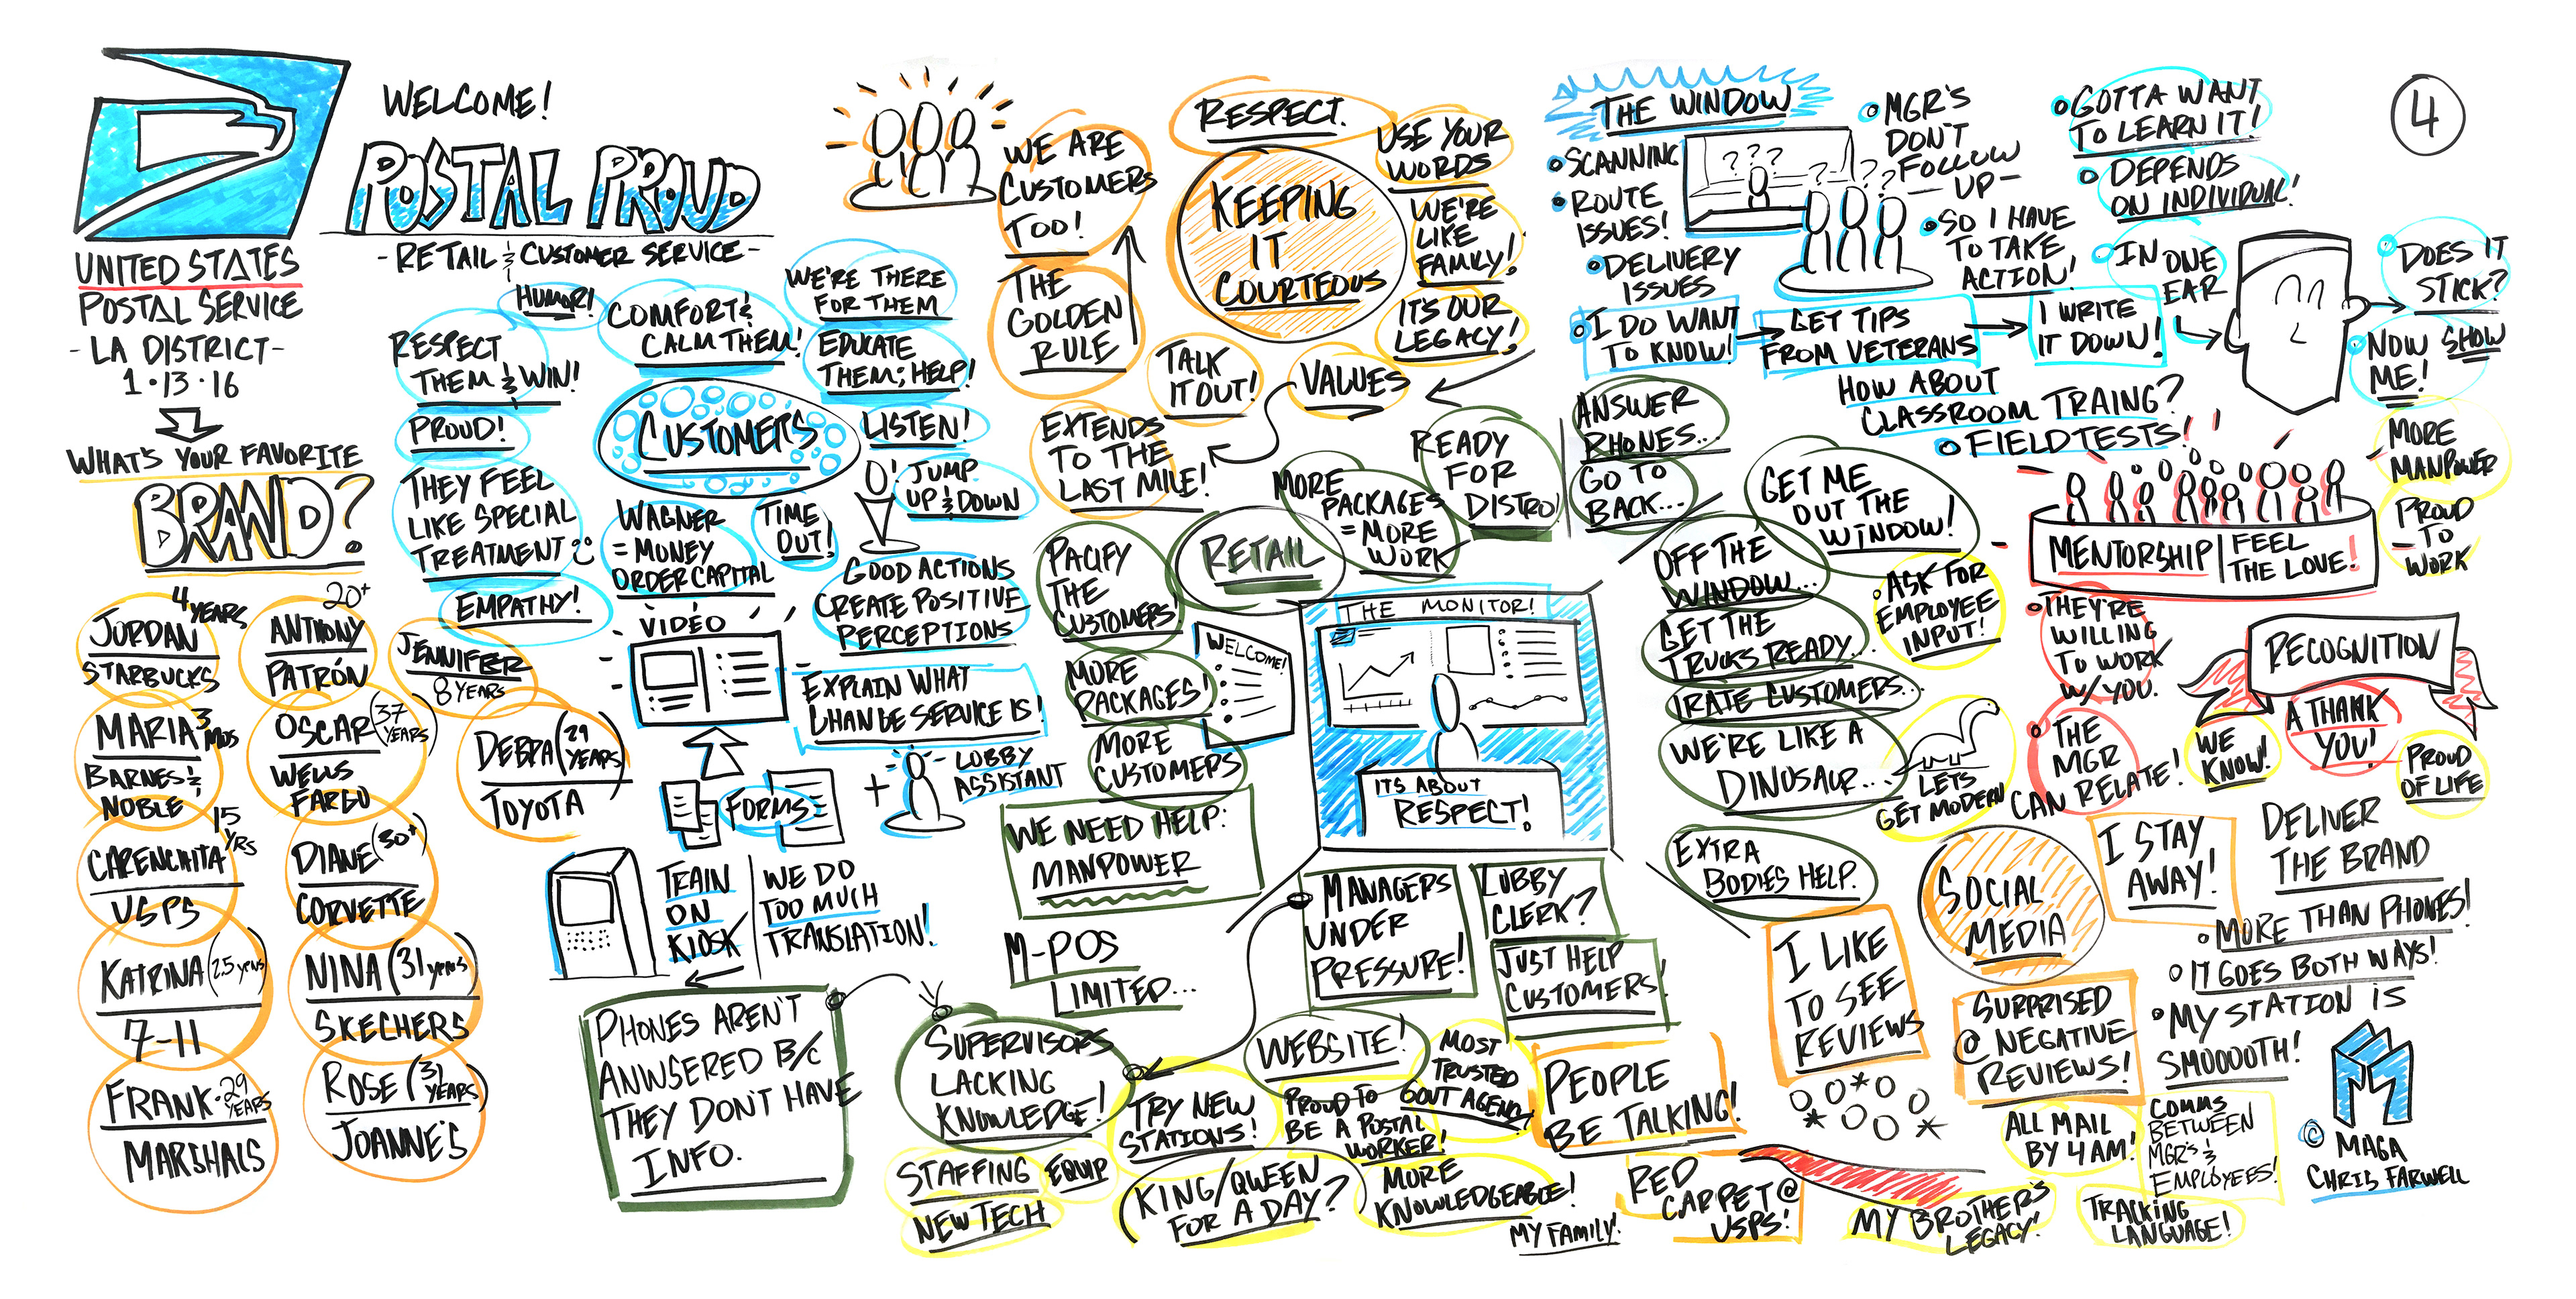 WELCOME!
POSTAL PROUD
-RETAIL & CUSTOMER SERVICE-
UNITED STATES
POSTAL SERVICE
-LA DISTRICT-
1·13·16
WHAT'S YOUR FAVORITE
BRAND?
JORDAN 4 YEARS
STARBUCKS
ANTHONY 20+
PATRÓN
JENNIFER
8 YEARS
MARIA 3 MOS
BARNES &
NOBLE
OSCAR (37 YEARS)
WELLS
FARGO
DEBRA (29 YEARS)
TOYOTA
CARENCHITA 15 YRS
USPS
DIANE (30+)
CORVETTE
KATRINA (25 years)
7-11
NINA (31 years)
SKECHERS
FRANK·29 YEARS
MARSHALS
ROSE (31 YEARS)
JOANNE'S
HUMOR!
RESPECT
THEM & WIN!
PROUD!
THEY FEEL
LIKE SPECIAL
TREATMENT
EMPATHY!
COMFORT &
CALM THEM!
WE'RE THERE
FOR THEM
EDUCATE
THEM; HELP!
CUSTOMERS
LISTEN!
JUMP
UP & DOWN
WAGNER
= MONEY
ORDER CAPITAL
TIME
OUT!
GOOD ACTIONS
CREATE POSITIVE
PERCEPTIONS
VIDEO
EXPLAIN WHAT
CHANGE SERVICE IS!
FORMS
+
LOBBY
ASSISTANT
TRAIN
ON
KIOSK
WE DO
TOO MUCH
TRANSLATION!
PHONES AREN'T
ANWSERED B/C
THEY DON'T HAVE
INFO.
WE ARE
CUSTOMERS
TOO!
THE
GOLDEN
RULE
RESPECT.
KEEPING
IT
COURTEOUS
USE YOUR
WORDS
WE'RE
LIKE
FAMILY!
IT'S OUR
LEGACY!
TALK
IT OUT!
VALUES
EXTENDS
TO THE
LAST MILE!
RETAIL
MORE
PACKAGES
= MORE
WORK
READY
FOR
DISTRO!
PACIFY
THE
CUSTOMERS!
MORE
PACKAGES!
MORE
CUSTOMERS
WELCOME!
THE MONITOR!
ITS ABOUT
RESPECT!
WE NEED HELP:
MANPOWER
M-POS
LIMITED...
MANAGERS
UNDER
PRESSURE!
LOBBY
CLERK?
JUST HELP
CUSTOMERS!
SUPERVISORS
LACKING
KNOWLEDGE!
WEBSITE!
TRY NEW
STATIONS!
PROUD TO
BE A POSTAL
WORKER!
MOST
TRUSTED
GOVT AGENCY!
STAFFING
EQUIP
NEW TECH
KING/QWEEN
FOR A DAY?
MORE
KNOWLEDGEABLE!
MY FAMILY!
THE WINDOW
SCANNING
ROUTE
ISSUES!
DELIVERY
ISSUES
???
???
MGR'S
DON'T
FOLLOW
-UP-
SO I HAVE
TO TAKE
ACTION!
GOTTA WANT
TO LEARN IT!
DEPENDS
ON INDIVIDUAL!
4
I DO WANT
TO KNOW!
GET TIPS
FROM VETERANS
I WRITE
IT DOWN!
IN ONE
EAR
DOES IT
STICK?
NOW SHOW
ME!
HOW ABOUT
CLASSROOM TRAING?
FIELD TESTS!
ANSWER
PHONES...
GO TO
BACK...
GET ME
OUT THE
WINDOW!
OFF THE
WINDOW...
GET THE
TRUCKS READY...
IRATE CUSTOMERS...
WE'RE LIKE A
DINOSAUR...
EXTRA
BODIES HELP.
ASK FOR
EMPLOYEE
INPUT!
LETS
GET MODERN
MENTORSHIP
FEEL
THE LOVE!
MORE
MANPOWER
PROUD
TO
WORK
THEY'RE
WILLING
TO WORK
W/ YOU.
THE
MGR
CAN RELATE!
RECOGNITION
A THANK
YOU!
WE
KNOW!
PROUD
OF LIFE
SOCIAL
MEDIA
I STAY
AWAY!
I LIKE
TO SEE
REVIEWS
SURPRISED
@ NEGATIVE
REVIEWS!
PEOPLE
BE TALKING!
RED
CARPET @
USPS!
DELIVER
THE BRAND
MORE THAN PHONES!
IT GOES BOTH WAYS!
MY STATION IS
SMOOOOTH!
ALL MAIL
BY 4AM!
COMMS
BETWEEN
MGR'S &
EMPLOYEES!
MY BROTHER'S
LEGACY!
TRACKING
LANGUAGE!
M
© MAGA
CHRIS FARWELL